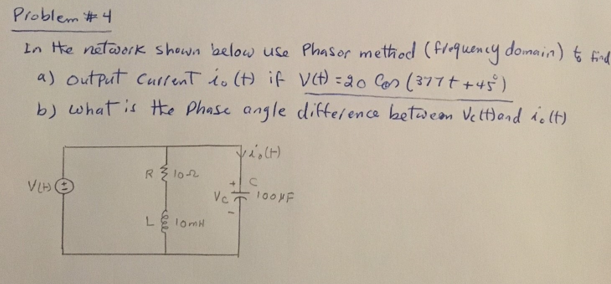 Problem #4
In the network shown below use Phasor method (frequency domain) to find
a) output current io(t) if V(t) = 20 Cos (377t + 45°)
b) what is the Phase angle difference between Vc(t) and io(t)
io(t)
R 10Ω
V(t) + -
+ C
Vc 100μF
-
L 10mH